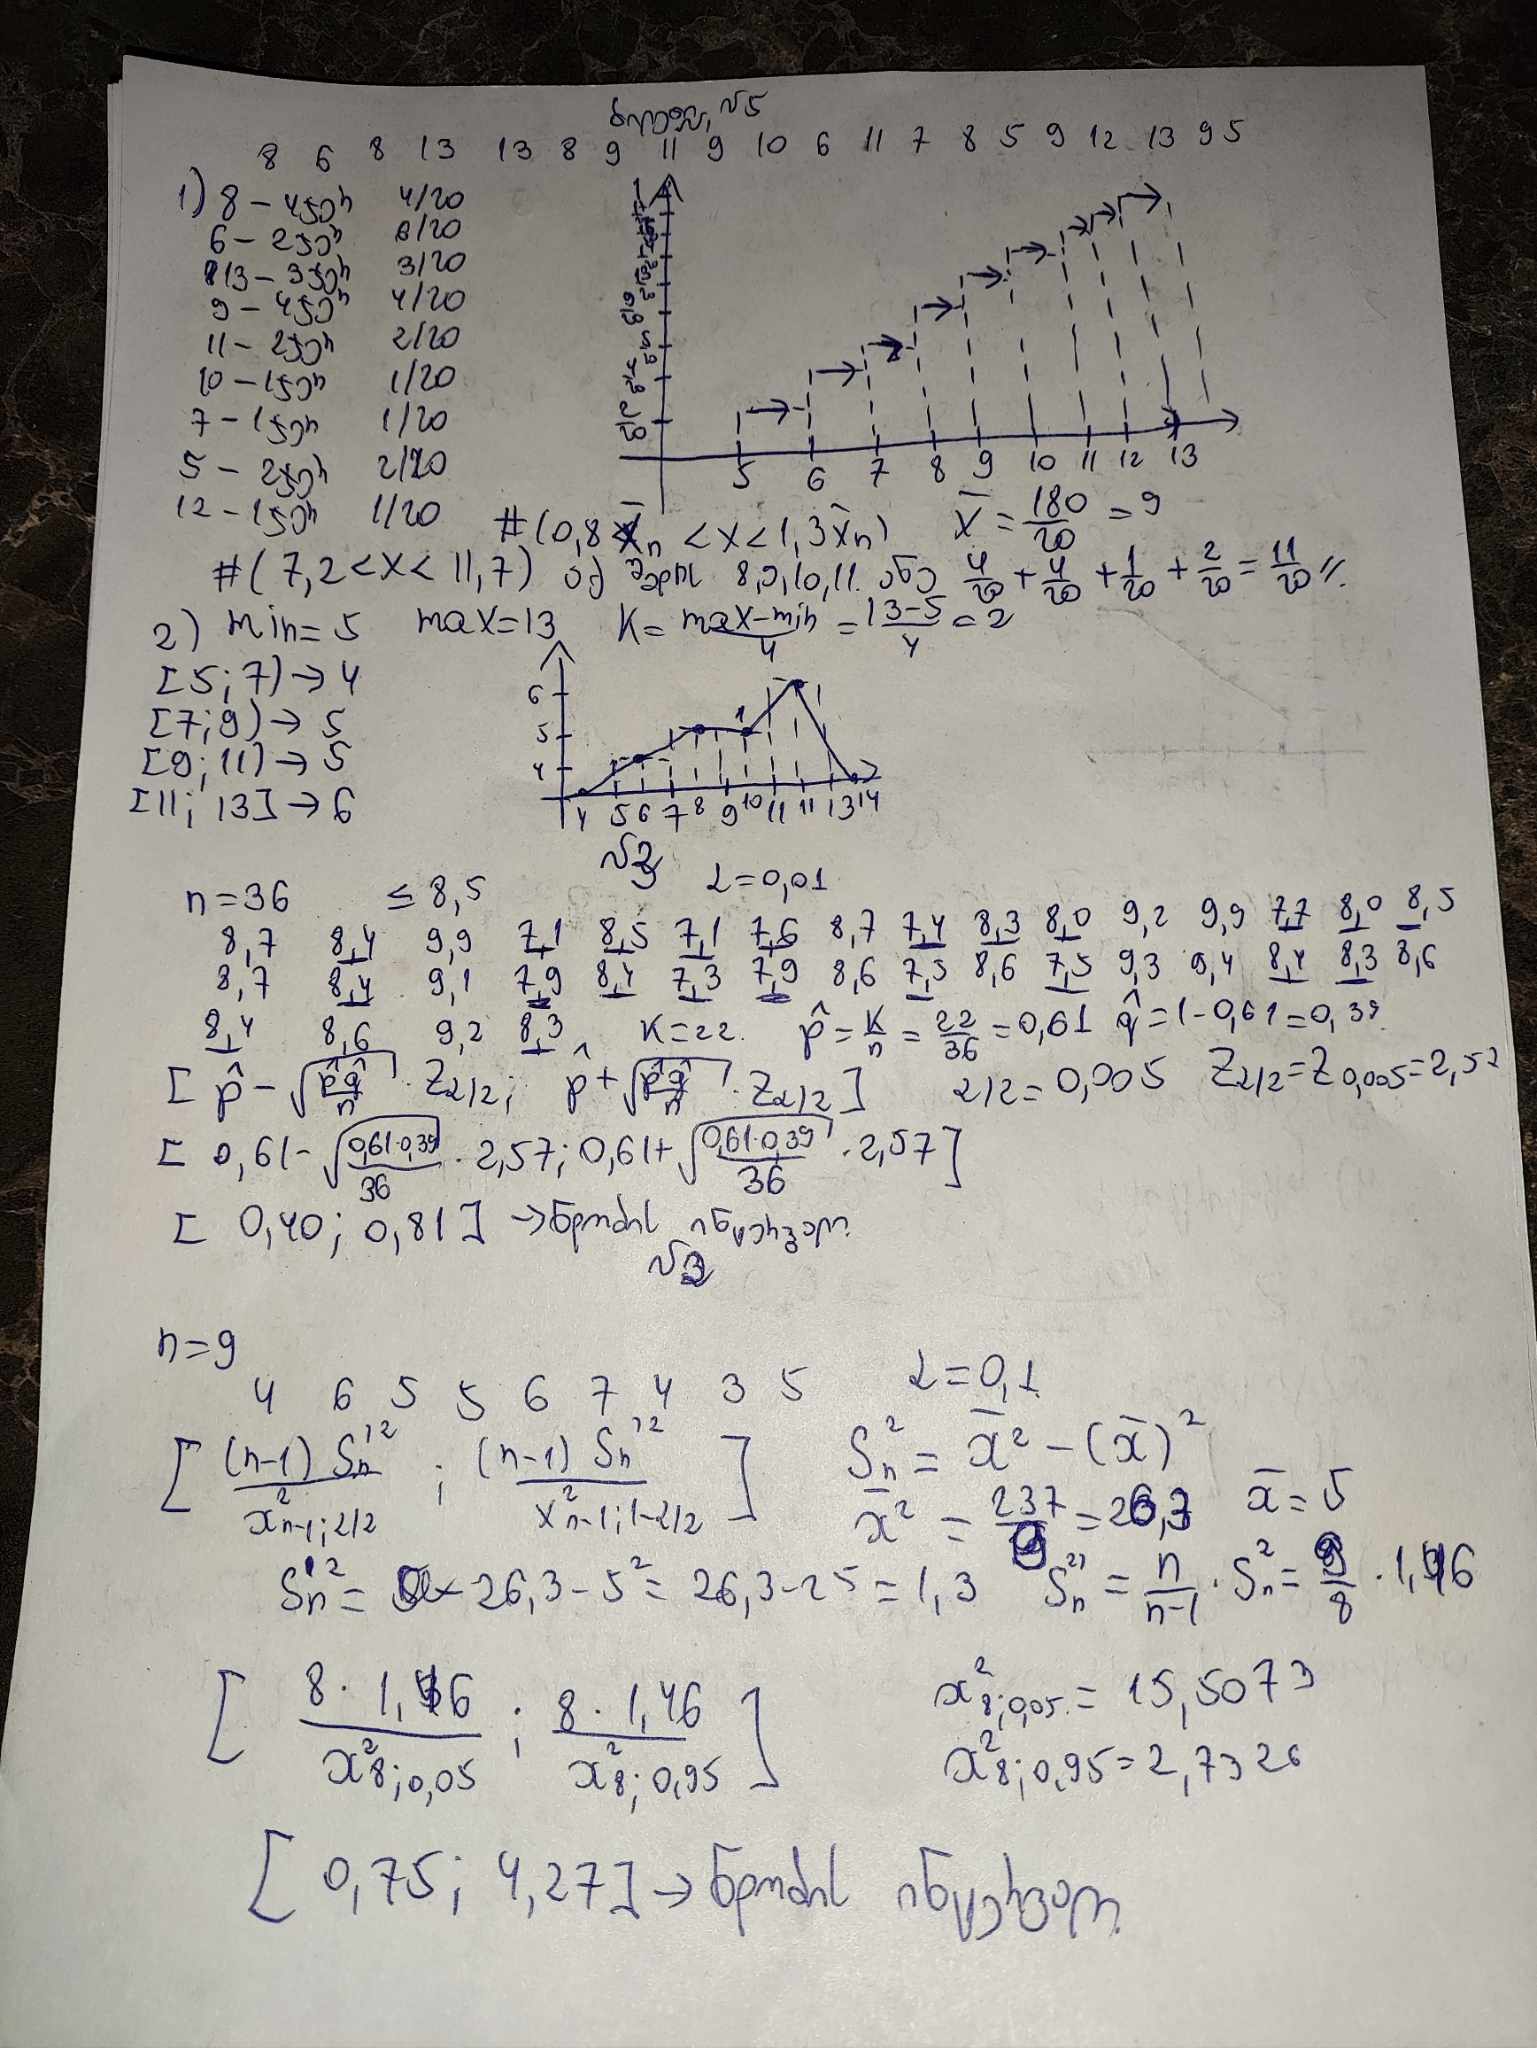 ბილეთი №5
8 6 8 13 13 8 9 11 9 10 6 11 7 8 5 9 12 13 9 5
1) 8 – 4ჯერ 4/20
6 – 2ჯერ 2/20
13 – 3ჯერ 3/20
9 – 4ჯერ 4/20
11 – 2ჯერ 2/20
10 – 1ჯერ 1/20
7 – 1ჯერ 1/20
5 – 2ჯერ 2/20
12 – 1ჯერ 1/20
5 6 7 8 9 10 11 12 13
#(0,8x̄n < X < 1,3x̄n) x̄ = 180/20 = 9
#(7,2 < X < 11,7) 8,9,10,11. ანუ 4/20 + 4/20 + 1/20 + 2/20 = 11/20 //.
2) min=5 max=13 K = max-min/4 = 13-5/4 = 2
[5;7) → 4
[7;9) → 5
[9;11) → 5
[11;13] → 6
6
5
4
4 5 6 7 8 9 10 11 11 13 14
№3
n=36 ≤ 8,5 α=0,01
8,7 8,4 9,9 7,1 8,5 7,1 7,6 8,7 7,4 8,3 8,0 9,2 9,9 7,7 8,0 8,5
8,7 8,4 9,1 7,9 8,4 7,3 7,9 8,6 7,5 8,6 7,5 9,3 9,4 8,4 8,3 8,6
8,4 8,6 9,2 8,3 K=22. p̂ = K/n = 22/36 = 0,61 q̂ = 1-0,61 = 0,39.
[p̂ - √(p̂q̂/n) · Zα/2; p̂ + √(p̂q̂/n) · Zα/2] α/2 = 0,005 Zα/2 = Z0,005 = 2,57
[0,61 - √(0,61·0,39/36) · 2,57; 0,61 + √(0,61·0,39/36) · 2,57]
[0,40; 0,81] → ნდობის ინტერვალი.
№2
n=9
4 6 5 5 6 7 4 3 5 α=0,1
[(n-1) Sn'²/x²n-1;α/2 ; (n-1) Sn'²/x²n-1;1-α/2] Sn² = x̄² - (x̄)²
x̄² = 237/9 = 26,3 x̄ = 5
Sn'² = 26,3 - 5² = 26,3 - 25 = 1,3 Sn²' = n/n-1 · Sn² = 9/8 · 1,46
[8·1,46/x²8;0,05 ; 8·1,46/x²8;0,95] x²8;0,05 = 15,5073
x²8;0,95 = 2,7326
[0,75; 4,27] → ნდობის ინტერვალი.